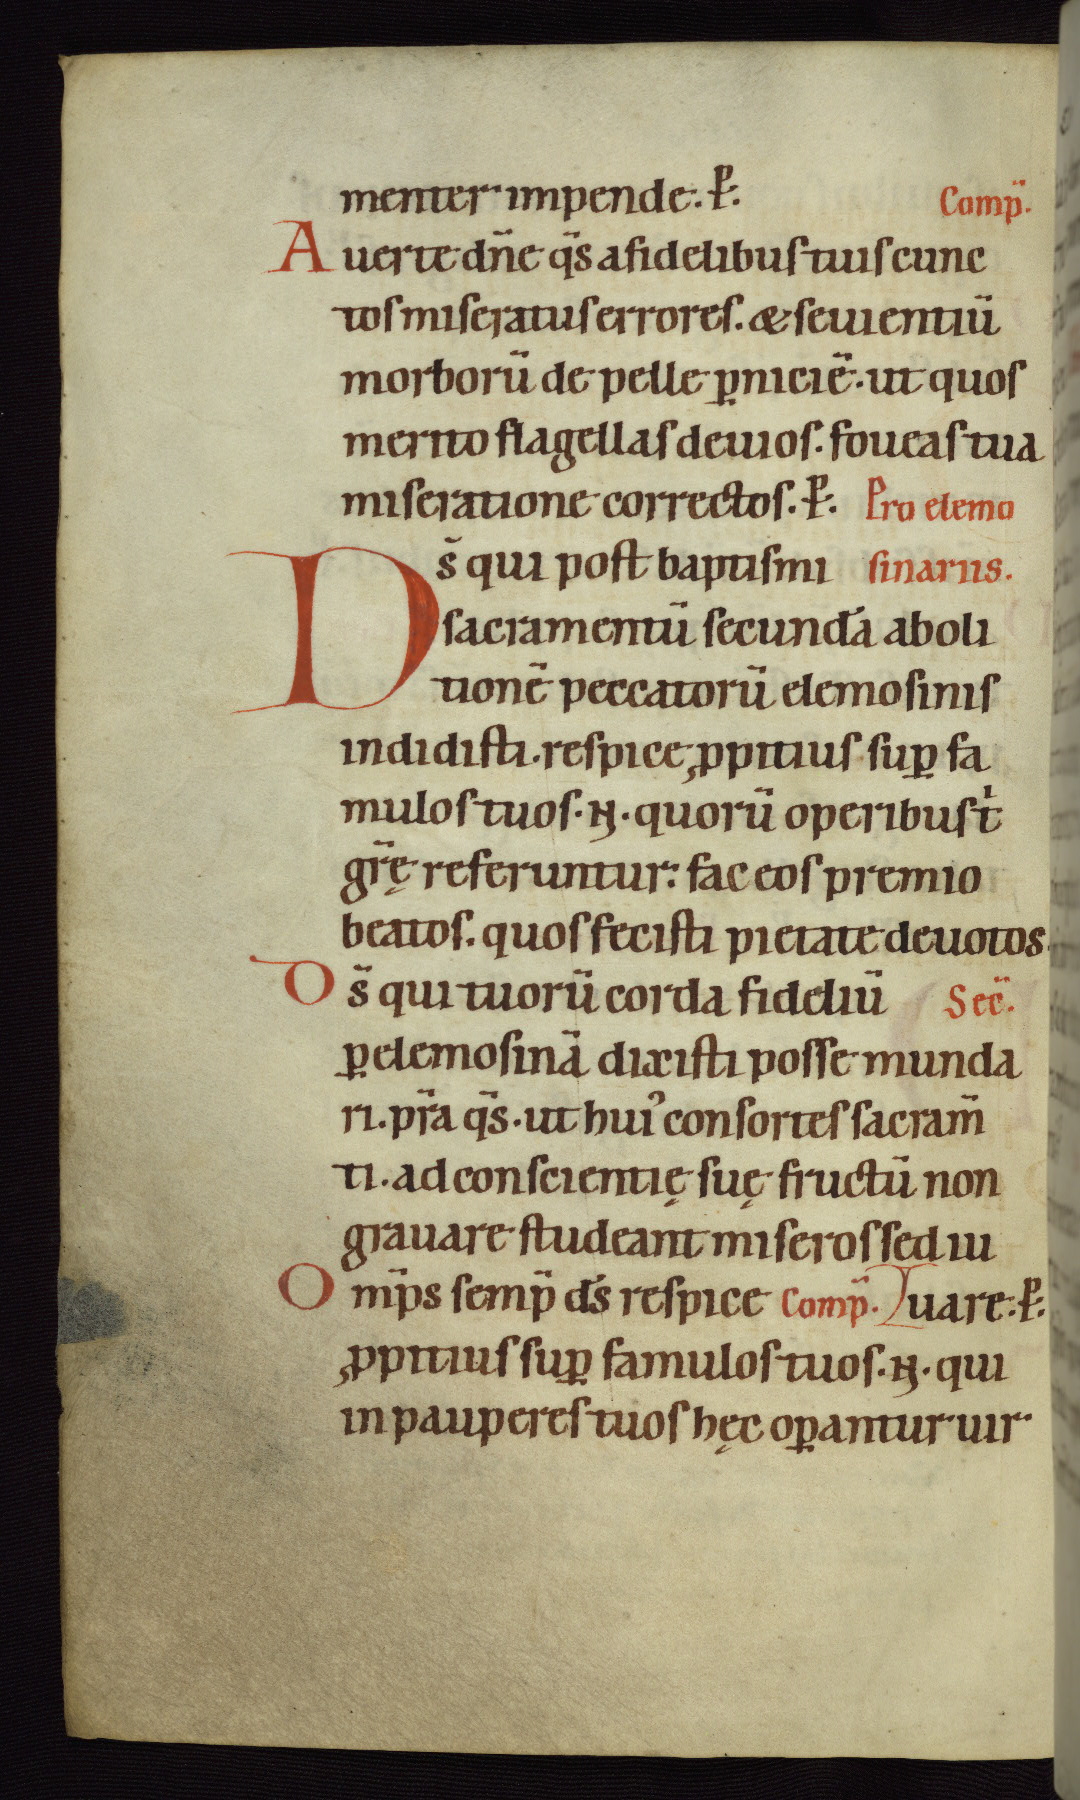 menter impende. P̄. Comp̄.
Auerte dn̄e q̄s a fidelibus tuis cunc
tos miseratus errores. & seuientiū
morborū de pelle ꝑniciē. ut quos
merito flagellas deuios. foueas tua
miseratione correctos. P̄. Pro elemo
Ds̄ qui post baptismi sinariis.
sacramentū secundā aboli
tionē peccatorū elemosinis
indidisti. respice ꝓpitius suꝑ fa
mulos tuos. N. quorū operibus t̄
gr̄ę referuntur. fac eos premio
beatos. quos fecisti pietate deuotos.
Ds̄ qui tuorū corda fideliū Sec̄.
ꝑ elemosinā dixisti posse munda
ri. pr̄a q̄s. ut hui᾽ consortes sacram̄
ti. ad conscientię suę fructū non
grauare studeant miseros sed iu
Omp̄s semp̄ ds̄ respice Comp̄. Iuare. P̄.
ꝓpitius suꝑ famulos tuos. N. qui
in pauperes tuos hęc oꝑantur uir